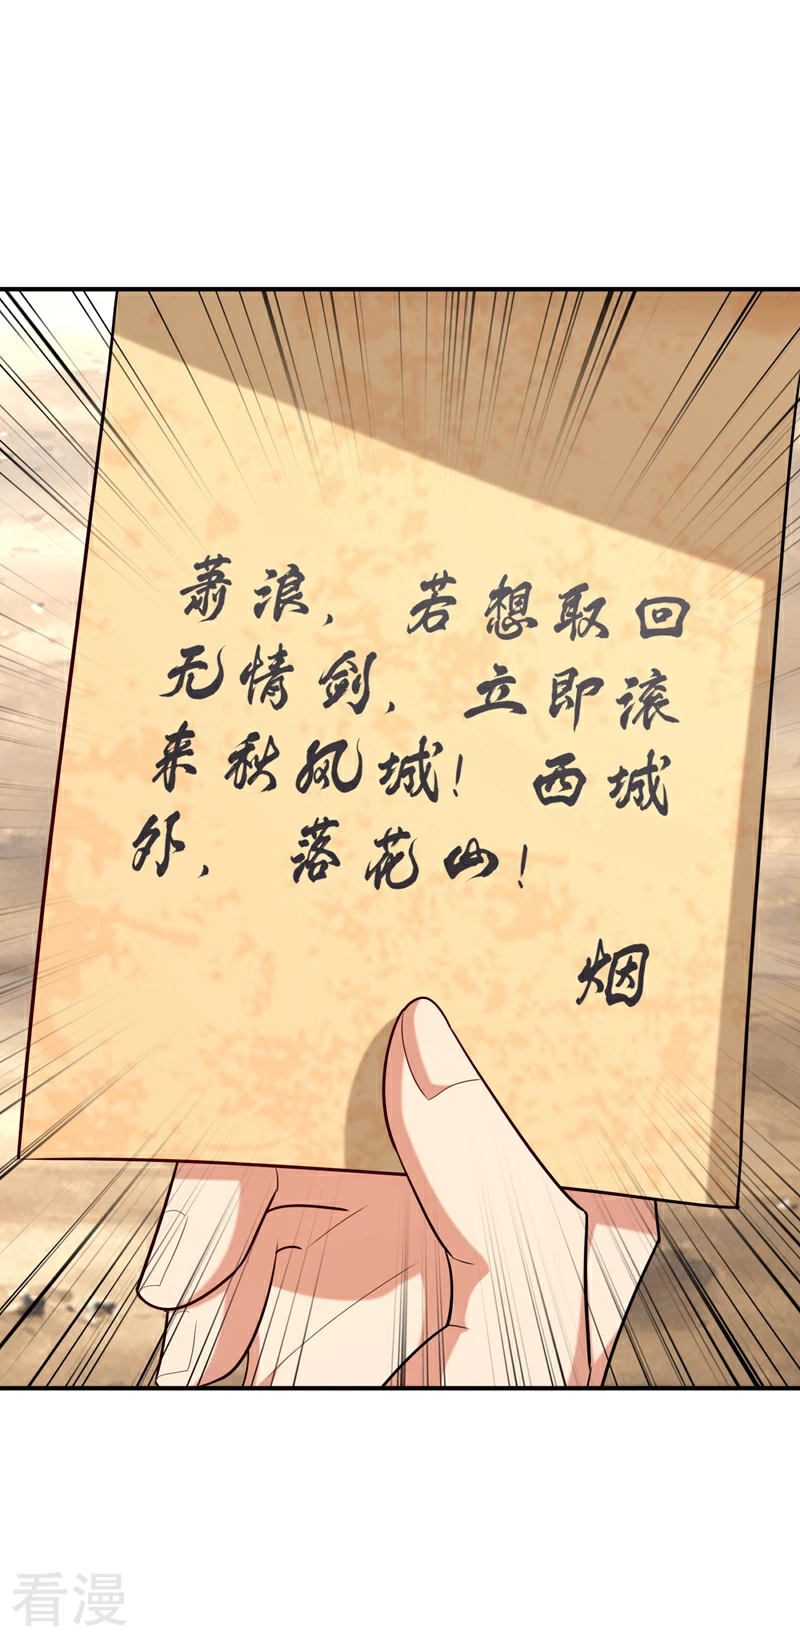 萧浪，若想取回
无情剑，立即滚
来秋风城！西城
外，落花山！
烟
看漫